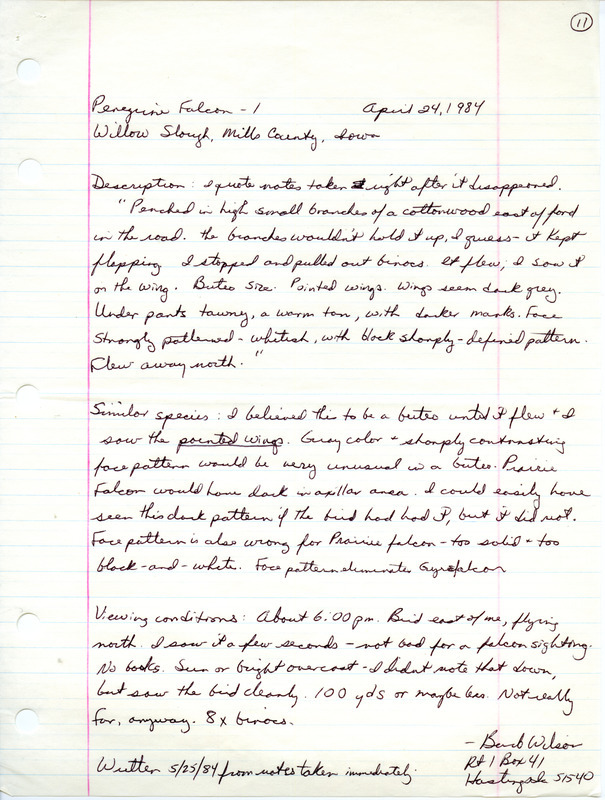 11
Peregrine Falcon - 1 April 24, 1984
Willow Slough, Mills County, Iowa
Description: I quote notes taken right after it disappeared.
"Perched in high small branches of a cottonwood east of ford
in the road. The branches wouldn't hold it up, I guess - it kept
flapping. I stopped and pulled out binocs. It flew; I saw it
on the wing. Buteo size. Pointed wings. Wings seem dark grey.
Under parts tawny, a warm tan, with darker marks. Face
strongly patterned - whitish, with black sharply-defined pattern.
Flew away north."
Similar species: I believed this to be a buteo until it flew + I
saw the pointed wings. Gray color + sharply contrasting
face pattern would be very unusual in a buteo. Prairie
Falcon would have dark in axillar area. I could easily have
seen this dark pattern if the bird had had it, but it did not.
Face pattern is also wrong for Prairie falcon - too solid + too
black-and-white. Face pattern eliminates Gyrfalcon
Viewing conditions: About 6:00 pm. Bird east of me, flying
north. I saw it a few seconds - not bad for a falcon sighting.
No books. Sun or bright overcast - I didn't note that down,
but saw the bird clearly. 100 yds or maybe less. Not really
far, anyway. 8x binocs.
- Barb Wilson
Rt 1 Box 41
Hastings, 51540
Written 5/25/84 from notes taken immediately.